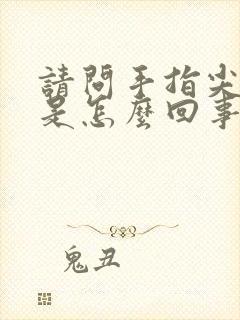 請問手指尖
是怎麼回事
鬼丑